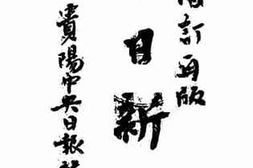 訂再版
日新
貴陽中央日報